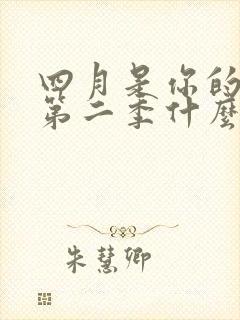 四月是你的
第二季什麼
朱慧卿